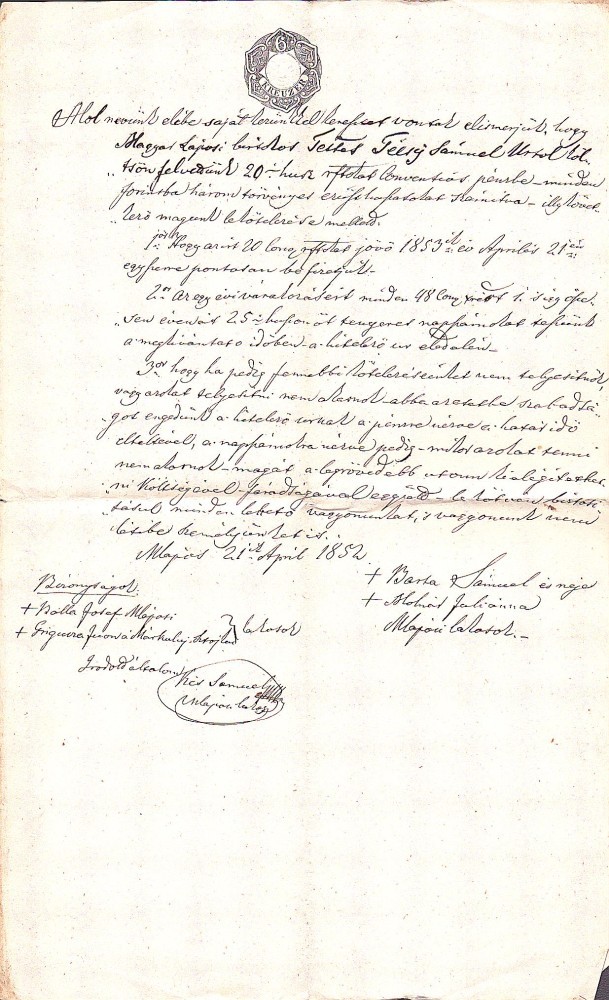 6
KREUZER
Alol nevünk elébe saját kezünkkel keresztet vontak elismerjük, hogy
Magyar Láposi birtokos Teftes Téčsy Sámuel Urtol köl-
tsön felvettünk 20 – husz rftokat Conventios pénzbe – minden
forintba három törvényes ezüst huszasokat számitva – illy követ-
kező magunk lekötelezése mellett.
1ször Hogy azint 20 Conv rftokat jövő 1853ik év Április 21én
egyszerre pontosan befizetjük –
2or Az egy évi várakozásért minden 48 Conv
sen évenként 25 – huszon öt tengeres napszámokat teszünk
a megkivántato időben – a hitelező ur oldalán –
3or hogy ha pedig fennebbi kötelezéseinket nem telyesitnők,
vagy azokat telyesitni nem akarnok – abba az esetbe szabadsá-
got engedünk a hitelező urnak a pénzre nézve a határidő
elteltével, a napszámokra nézve pedig – mikor azokat tenni
nem akarnok – magát a legrövidebb uton ki elégittethet-
ni költségével fáradtságával eggyütt – le kötvén biztosi-
tásul minden lehető vagyonunkat, 's vagyonunk nem
létibe személyünket is.
MLápos 21ik April 1852
Bizonyságok:
+ Balla Josef MLáposi
lakosok
Irodott általam
Kis Samuel
MLáposi lakos
+ Barta Sámuel és neje
+ Molnár Juliánna
MLáposi lakosok. –